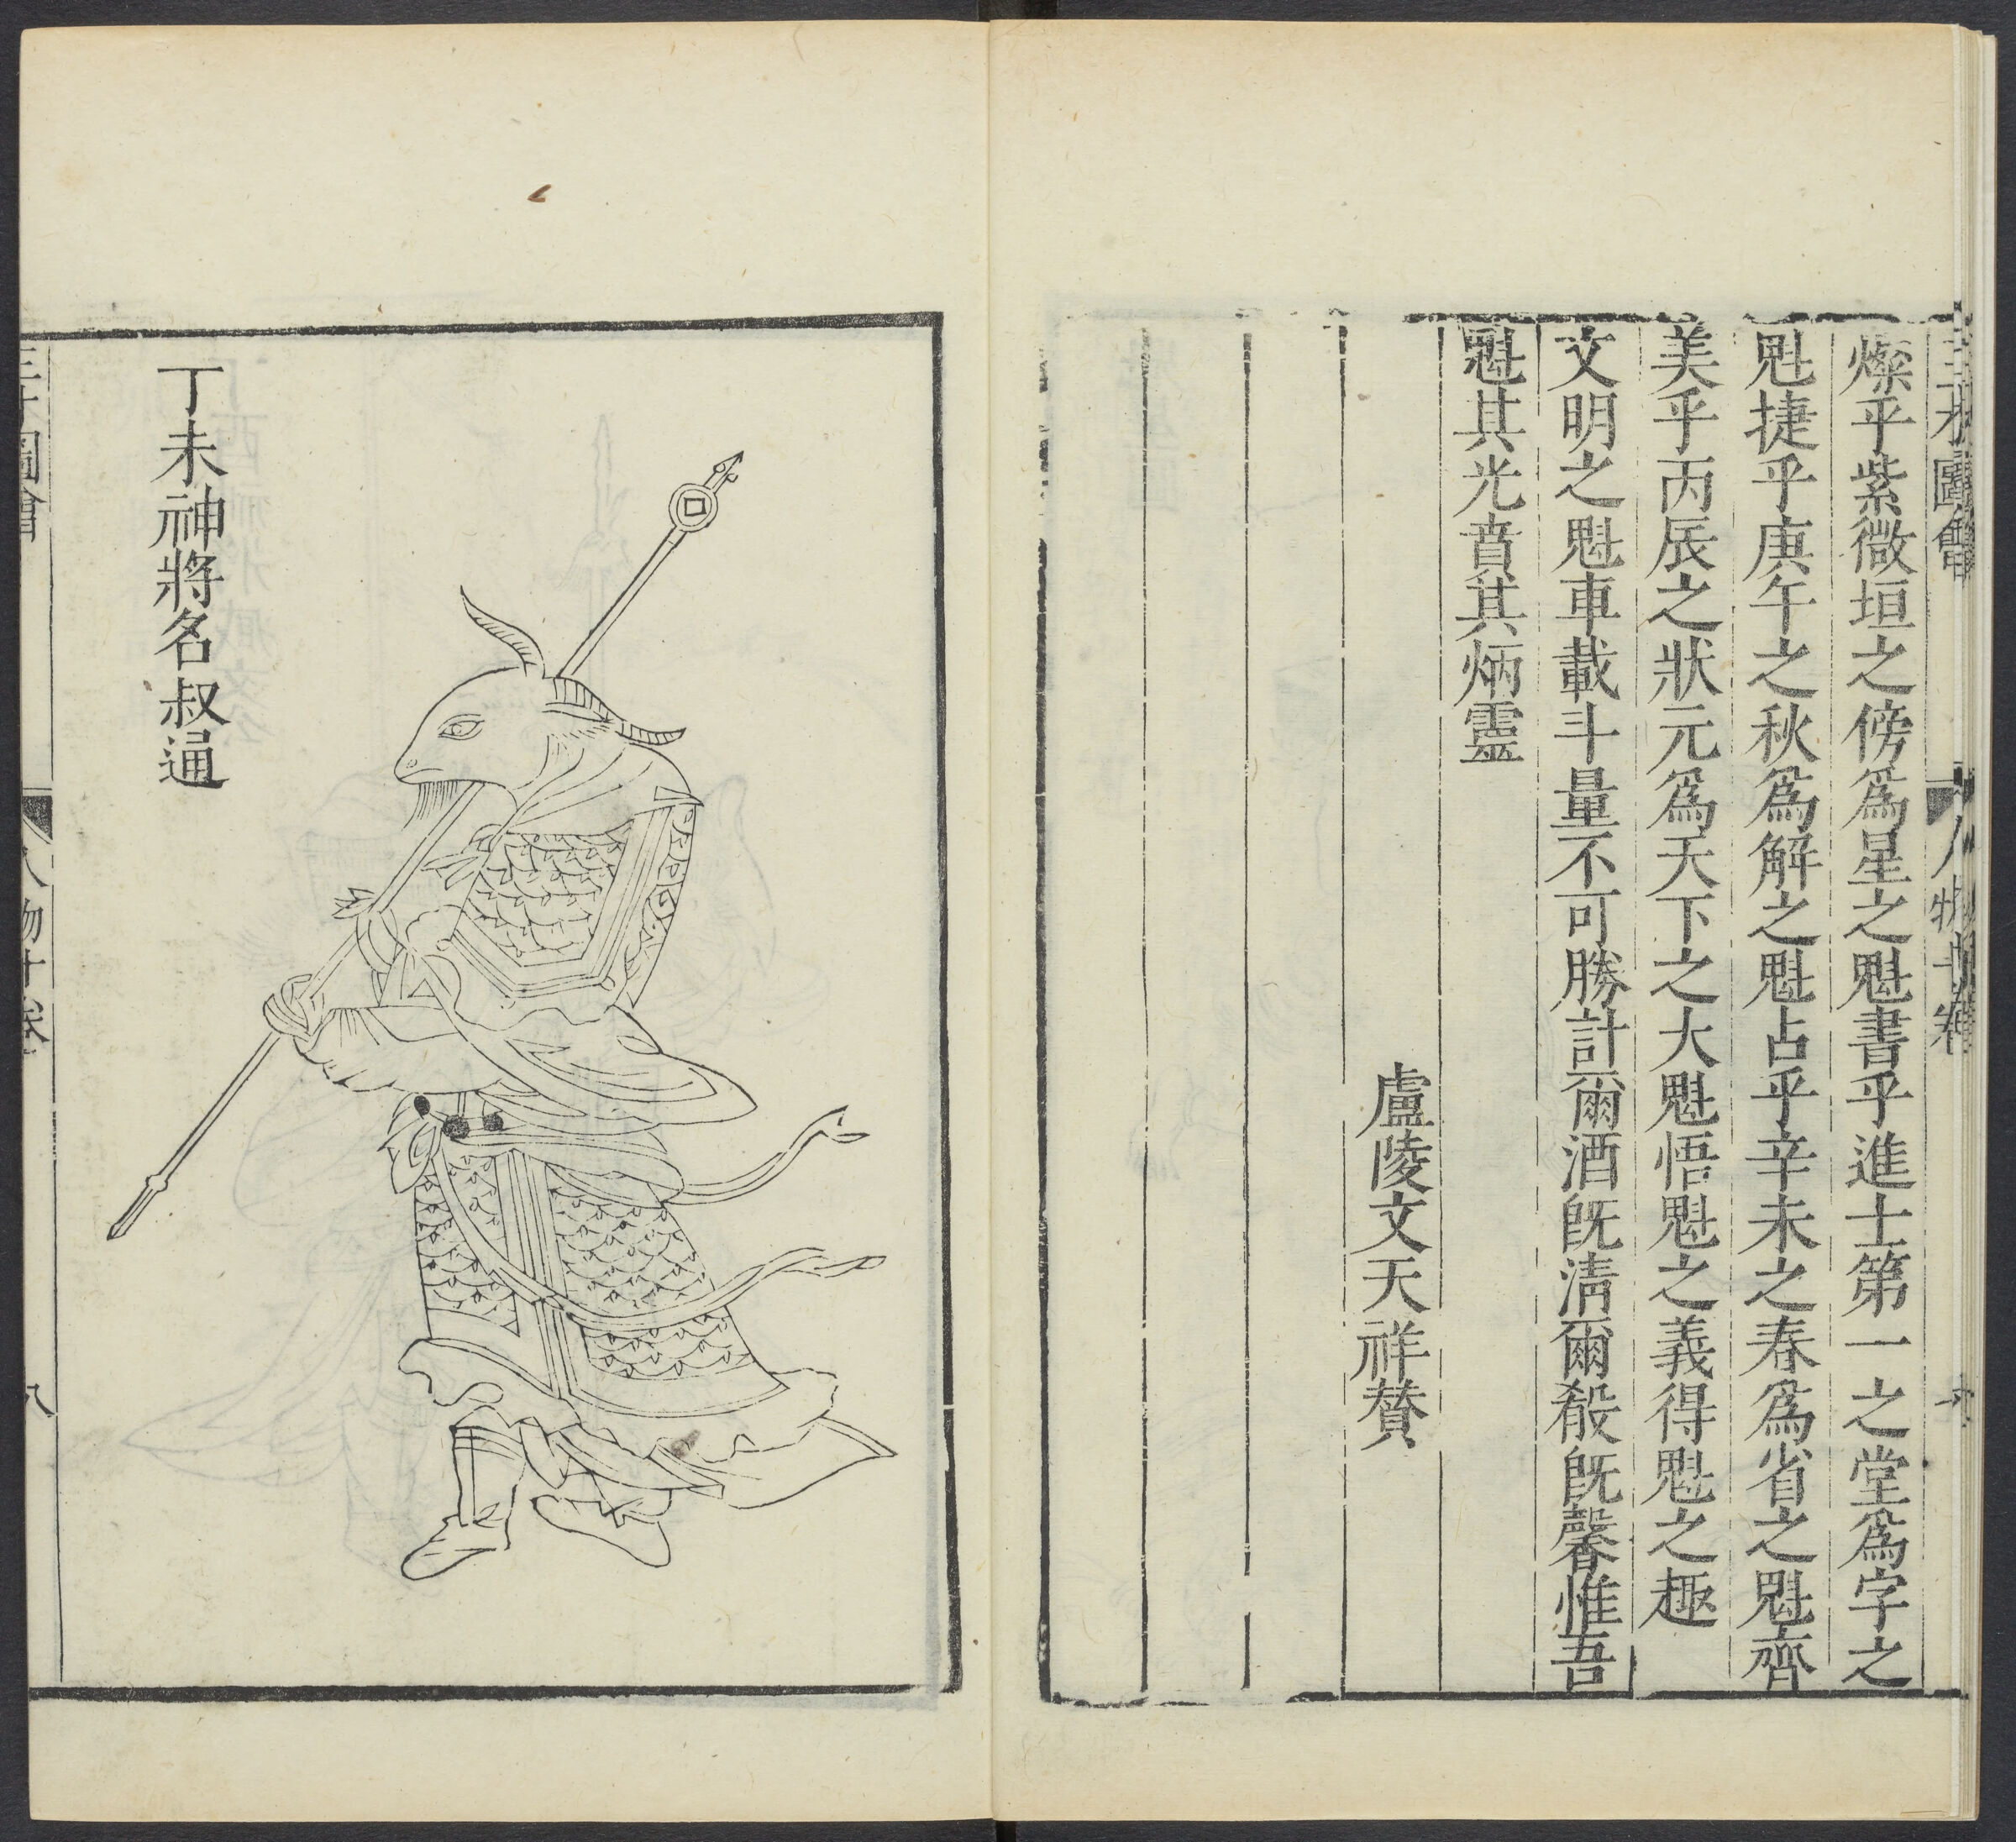 三才圖會 人物十卷
燦乎紫微垣之傍爲星之魁書乎進士第一之堂爲字之
魁捷乎庚午之秋爲解之魁占乎辛未之春爲省之魁齊
美乎丙辰之狀元爲天下之大魁悟魁之義得魁之趣
文明之魁車載斗量不可勝計爾酒旣清爾殽旣馨惟吾
魁其光賁其炳靈
盧陵文天祥贊
丁未神將名叔通
三才圖會 人物十卷 八